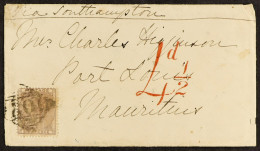 Via Southampton
Mrs Charles Higginson
Port Louis
Mauritius
4 1/2 d